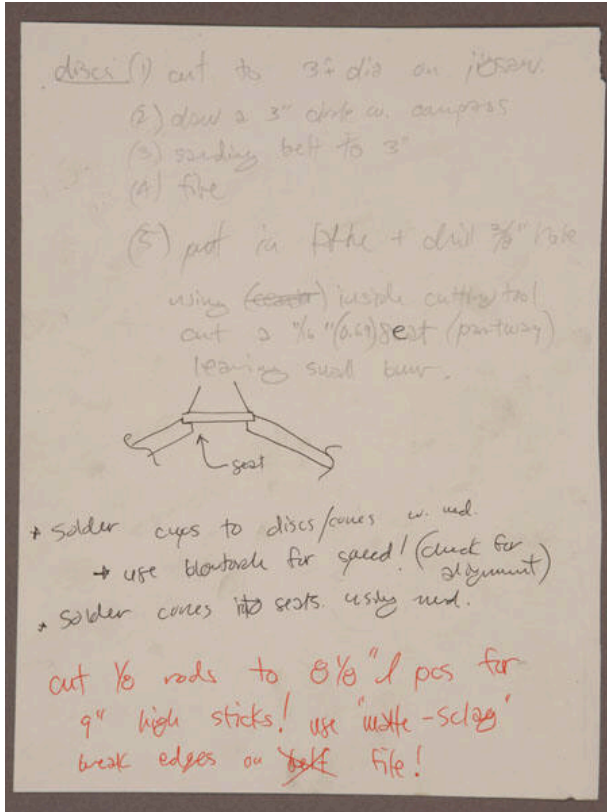 discs (1) cut to 3"+ dia on jigsaw.
(2) draw a 3" circle w. compass
(3) sanding belt to 3"
(4) file
(5) put in lathe + drill 3/8" hole
using inside cutting tool
cut a 11/16" (0.69) seat (partway)
leaving small burr.
seat
* solder cups to discs/cones w. med.
→ use blowtorch for speed! (check for
alignment)
* solder cones into seats. using med.
cut 1/8 rods to 8 1/8" l pcs for
9" high sticks! use "matte-sclag"
break edges on belt file!